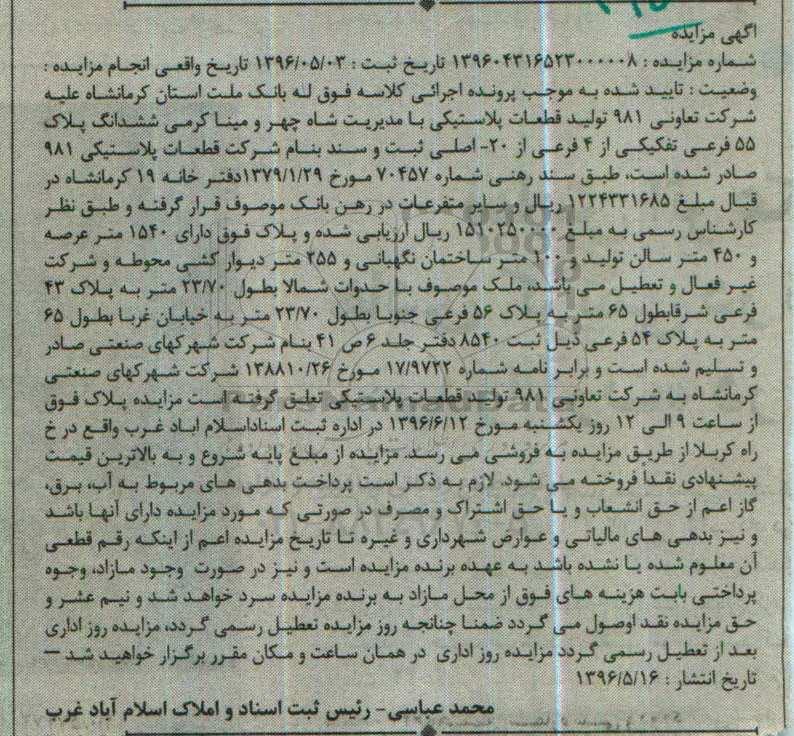 آگهی مزایده
شماره مزایده : ۱۳۹۶۰۴۳۱۶۵۲۳۰۰۰۰۰۸ تاریخ ثبت : ۱۳۹۶/۰۵/۰۳ تاریخ واقعی انجام مزایده :
وضعیت : تایید شده به موجب پرونده اجرائی کلاسه فوق له بانک ملت استان کرمانشاه علیه
شرکت تعاونی ۹۸۱ تولید قطعات پلاستیکی با مدیریت شاه چهر و مینا کرمی ششدانگ پلاک
۵۵ فرعی تفکیکی از ۴ فرعی از ۲۰- اصلی ثبت و سند بنام شرکت قطعات پلاستیکی ۹۸۱
صادر شده است، طبق سند رهنی شماره ۷۰۴۵۷ مورخ ۱۳۷۹/۱/۲۹دفتر خانه ۱۹ کرمانشاه در
قبال مبلغ ۱۲۲۴۳۳۱۶۸۵ ریال و سایر متفرعات در رهن بانک موصوف قرار گرفته و طبق نظر
کارشناس رسمی به مبلغ ۱۵۱۰۲۵۰۰۰۰ ریال ارزیابی شده و پلاک فوق دارای ۱۵۴۰ متر عرصه
و ۴۵۰ متر سالن تولید و ۱۰۰ متر ساختمان نگهبانی و ۲۵۵ متر دیوار کشی محوطه و شرکت
غیر فعال و تعطیل می باشد، ملک موصوف با حدوات شمالا بطول ۲۳/۷۰ متر به پلاک ۴۳
فرعی شرقابطول ۶۵ متر به پلاک ۵۶ فرعی جنوبا بطول ۲۳/۷۰ متر به خیابان غربا بطول ۶۵
متر به پلاک ۵۴ فرعی ذیل ثبت ۸۵۴۰ دفتر جلد ۶ ص ۴۱ بنام شرکت شهرکهای صنعتی صادر
و تسلیم شده است و برابر نامه شماره ۱۷/۹۷۲۲ مورخ ۱۳۸۸۱۰/۲۶ شرکت شهرکهای صنعتی
کرمانشاه به شرکت تعاونی ۹۸۱ تولید قطعات پلاستیکی تعلق گرفته است مزایده پلاک فوق
از ساعت ۹ الی ۱۲ روز یکشنبه مورخ ۱۳۹۶/۶/۱۲ در اداره ثبت اسناداسلام اباد غرب واقع در خ
راه کربلا از طریق مزایده به فروشی می رسد. مزایده از مبلغ پایه شروع و به بالاترین قیمت
پیشنهادی نقداً فروخته می شود. لازم به ذکر است پرداخت بدهی های مربوط به آب، برق،
گاز اعم از حق انشعاب و یا حق اشتراک و مصرف در صورتی که مورد مزایده دارای آنها باشد
و نیز بدهی های مالیاتی و عوارض شهرداری و غیره تا تاریخ مزایده اعم از اینکه رقم قطعی
آن معلوم شده یا نشده باشد به عهده برنده مزایده است و نیز در صورت وجود مازاد، وجوه
پرداختی بابت هزینه های فوق از محل مازاد به برنده مزایده سرد خواهد شد و نیم عشر و
حق مزایده نقد اوصول می گردد ضمنا چنانچه روز مزایده تعطیل رسمی گردد، مزایده روز اداری
بعد از تعطیل رسمی گردد مزایده روز اداری در همان ساعت و مکان مقرر برگزار خواهید شد —
تاریخ انتشار : ۱۳۹۶/۵/۱۶
محمد عباسی- رئیس ثبت اسناد و املاک اسلام آباد غرب